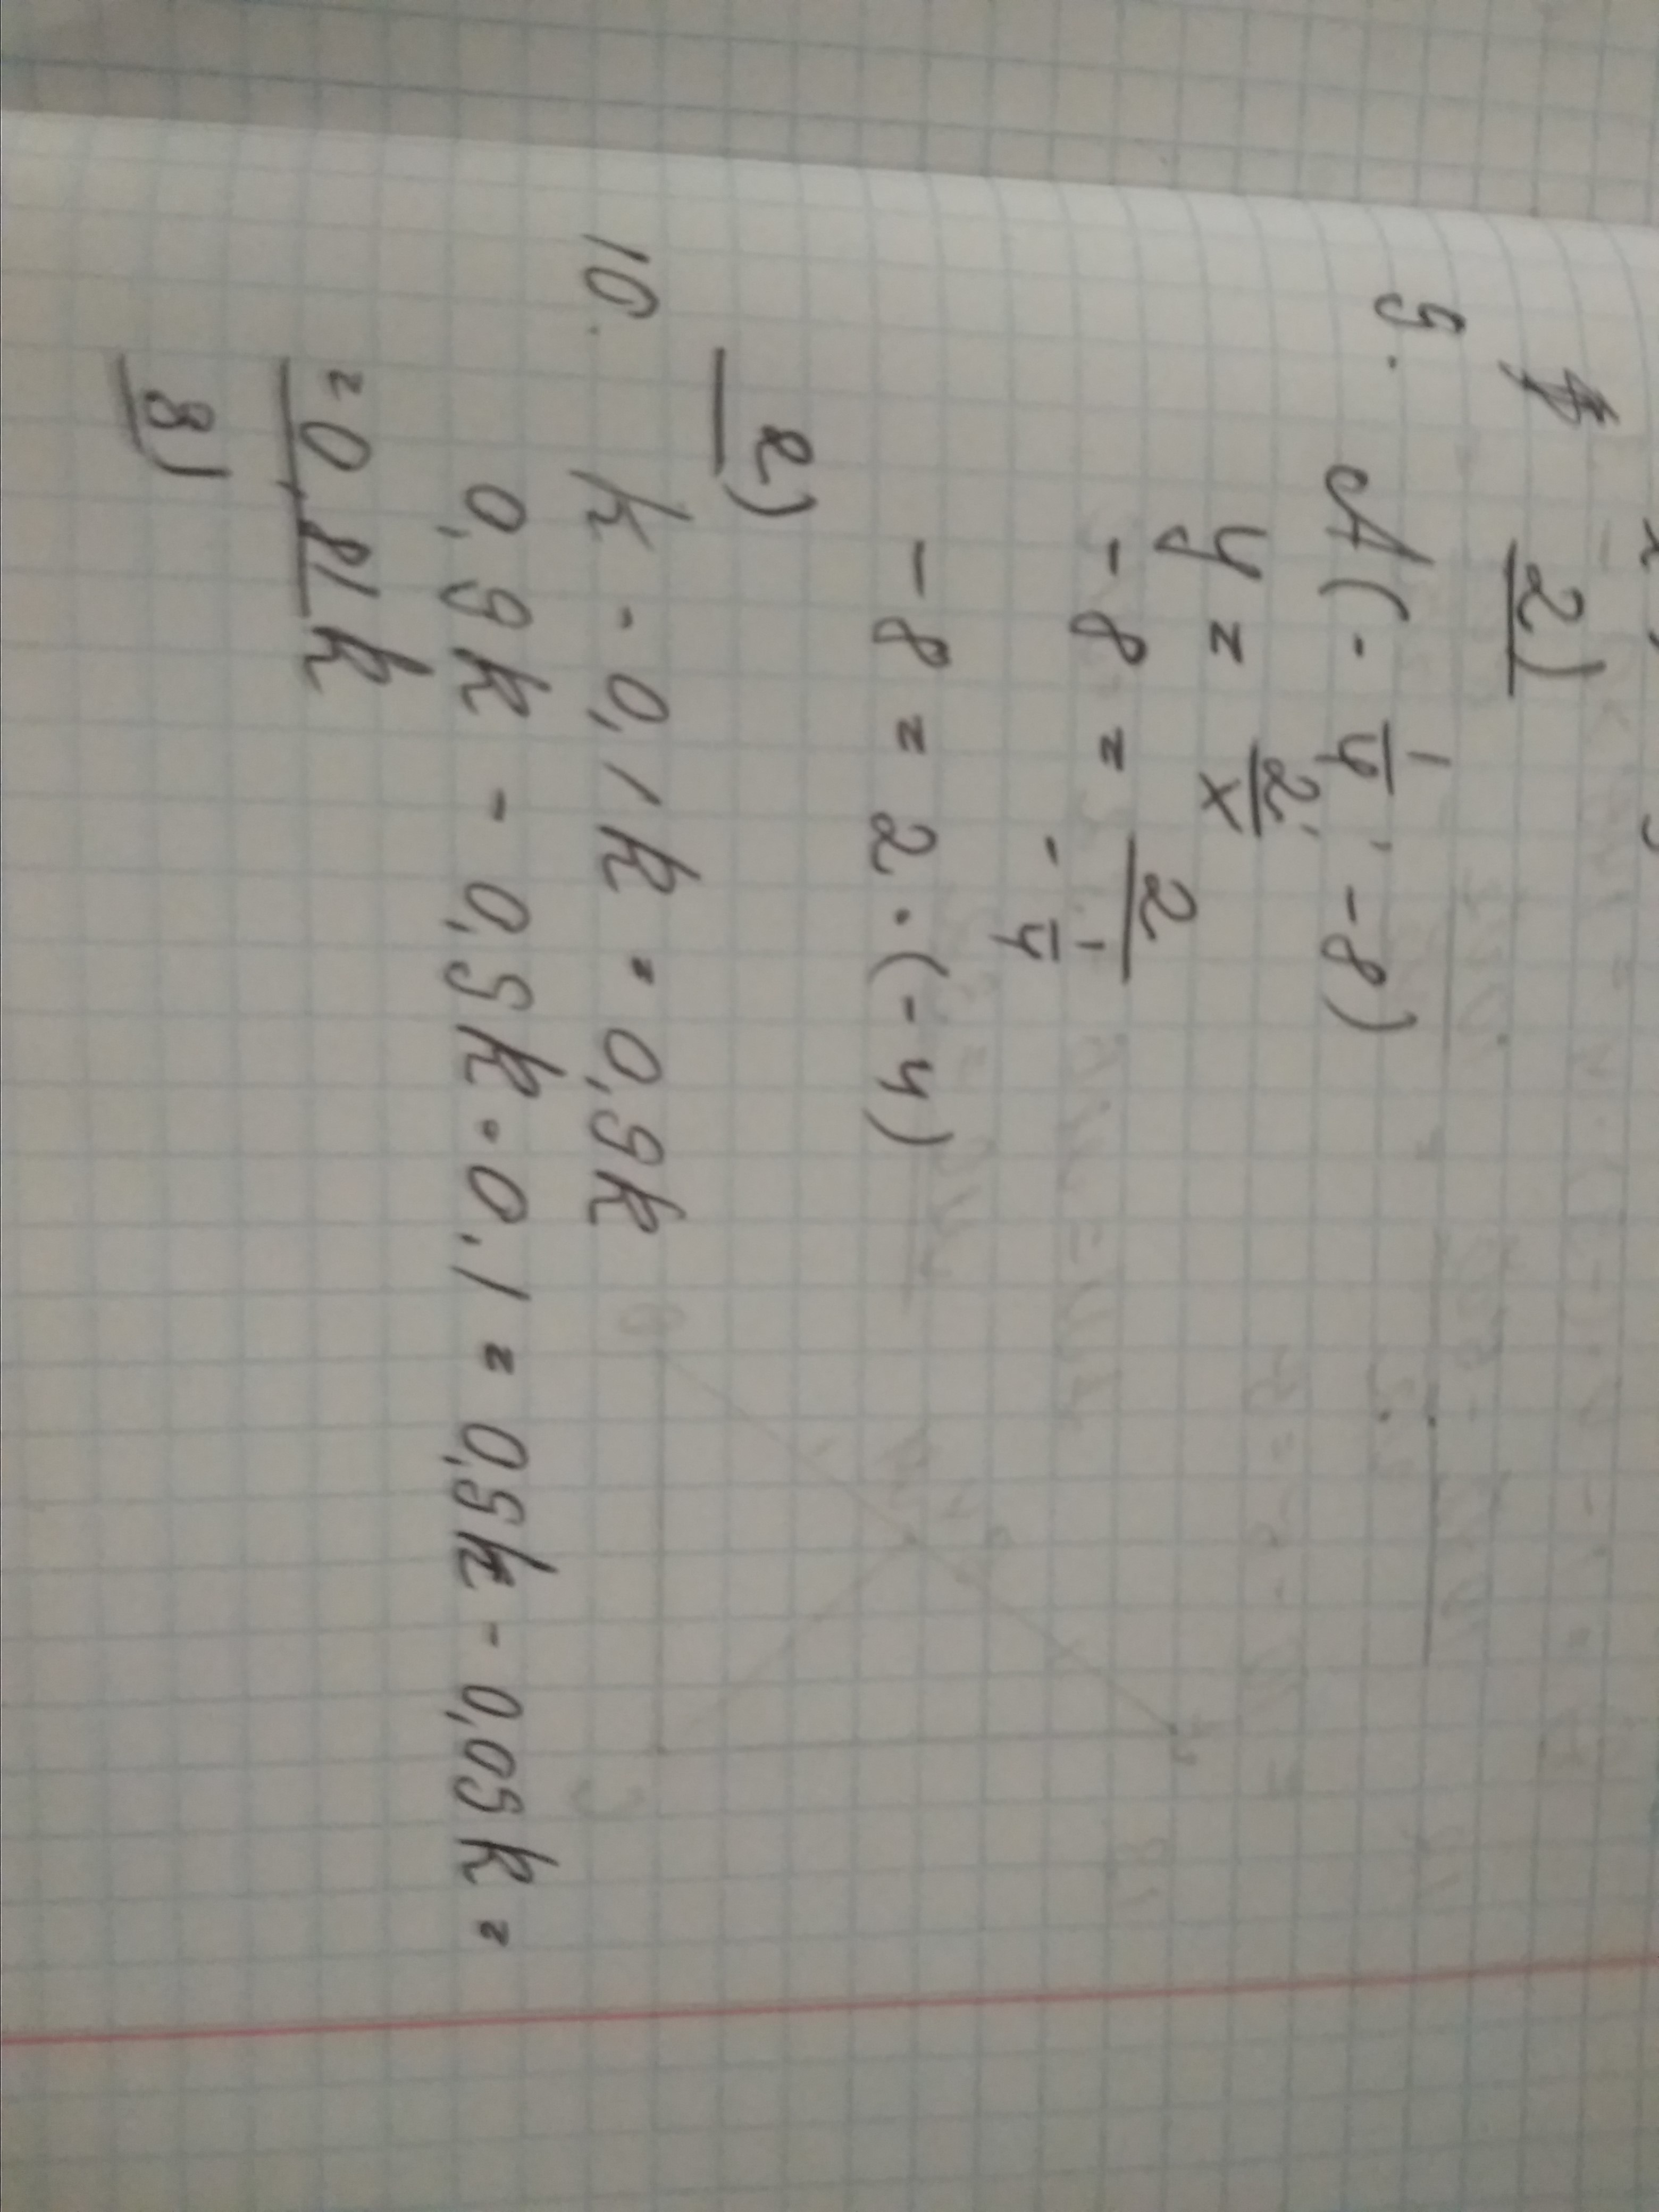 2)
9.
A(-1/4, -8)
y = 2/x
-8 = 2/(-1/4)
-8 = 2 · (-4)
2)
10.
k - 0,1k = 0,9k
0,9k - 0,9k · 0,1 = 0,9k - 0,09k =
= 0,81k
3)